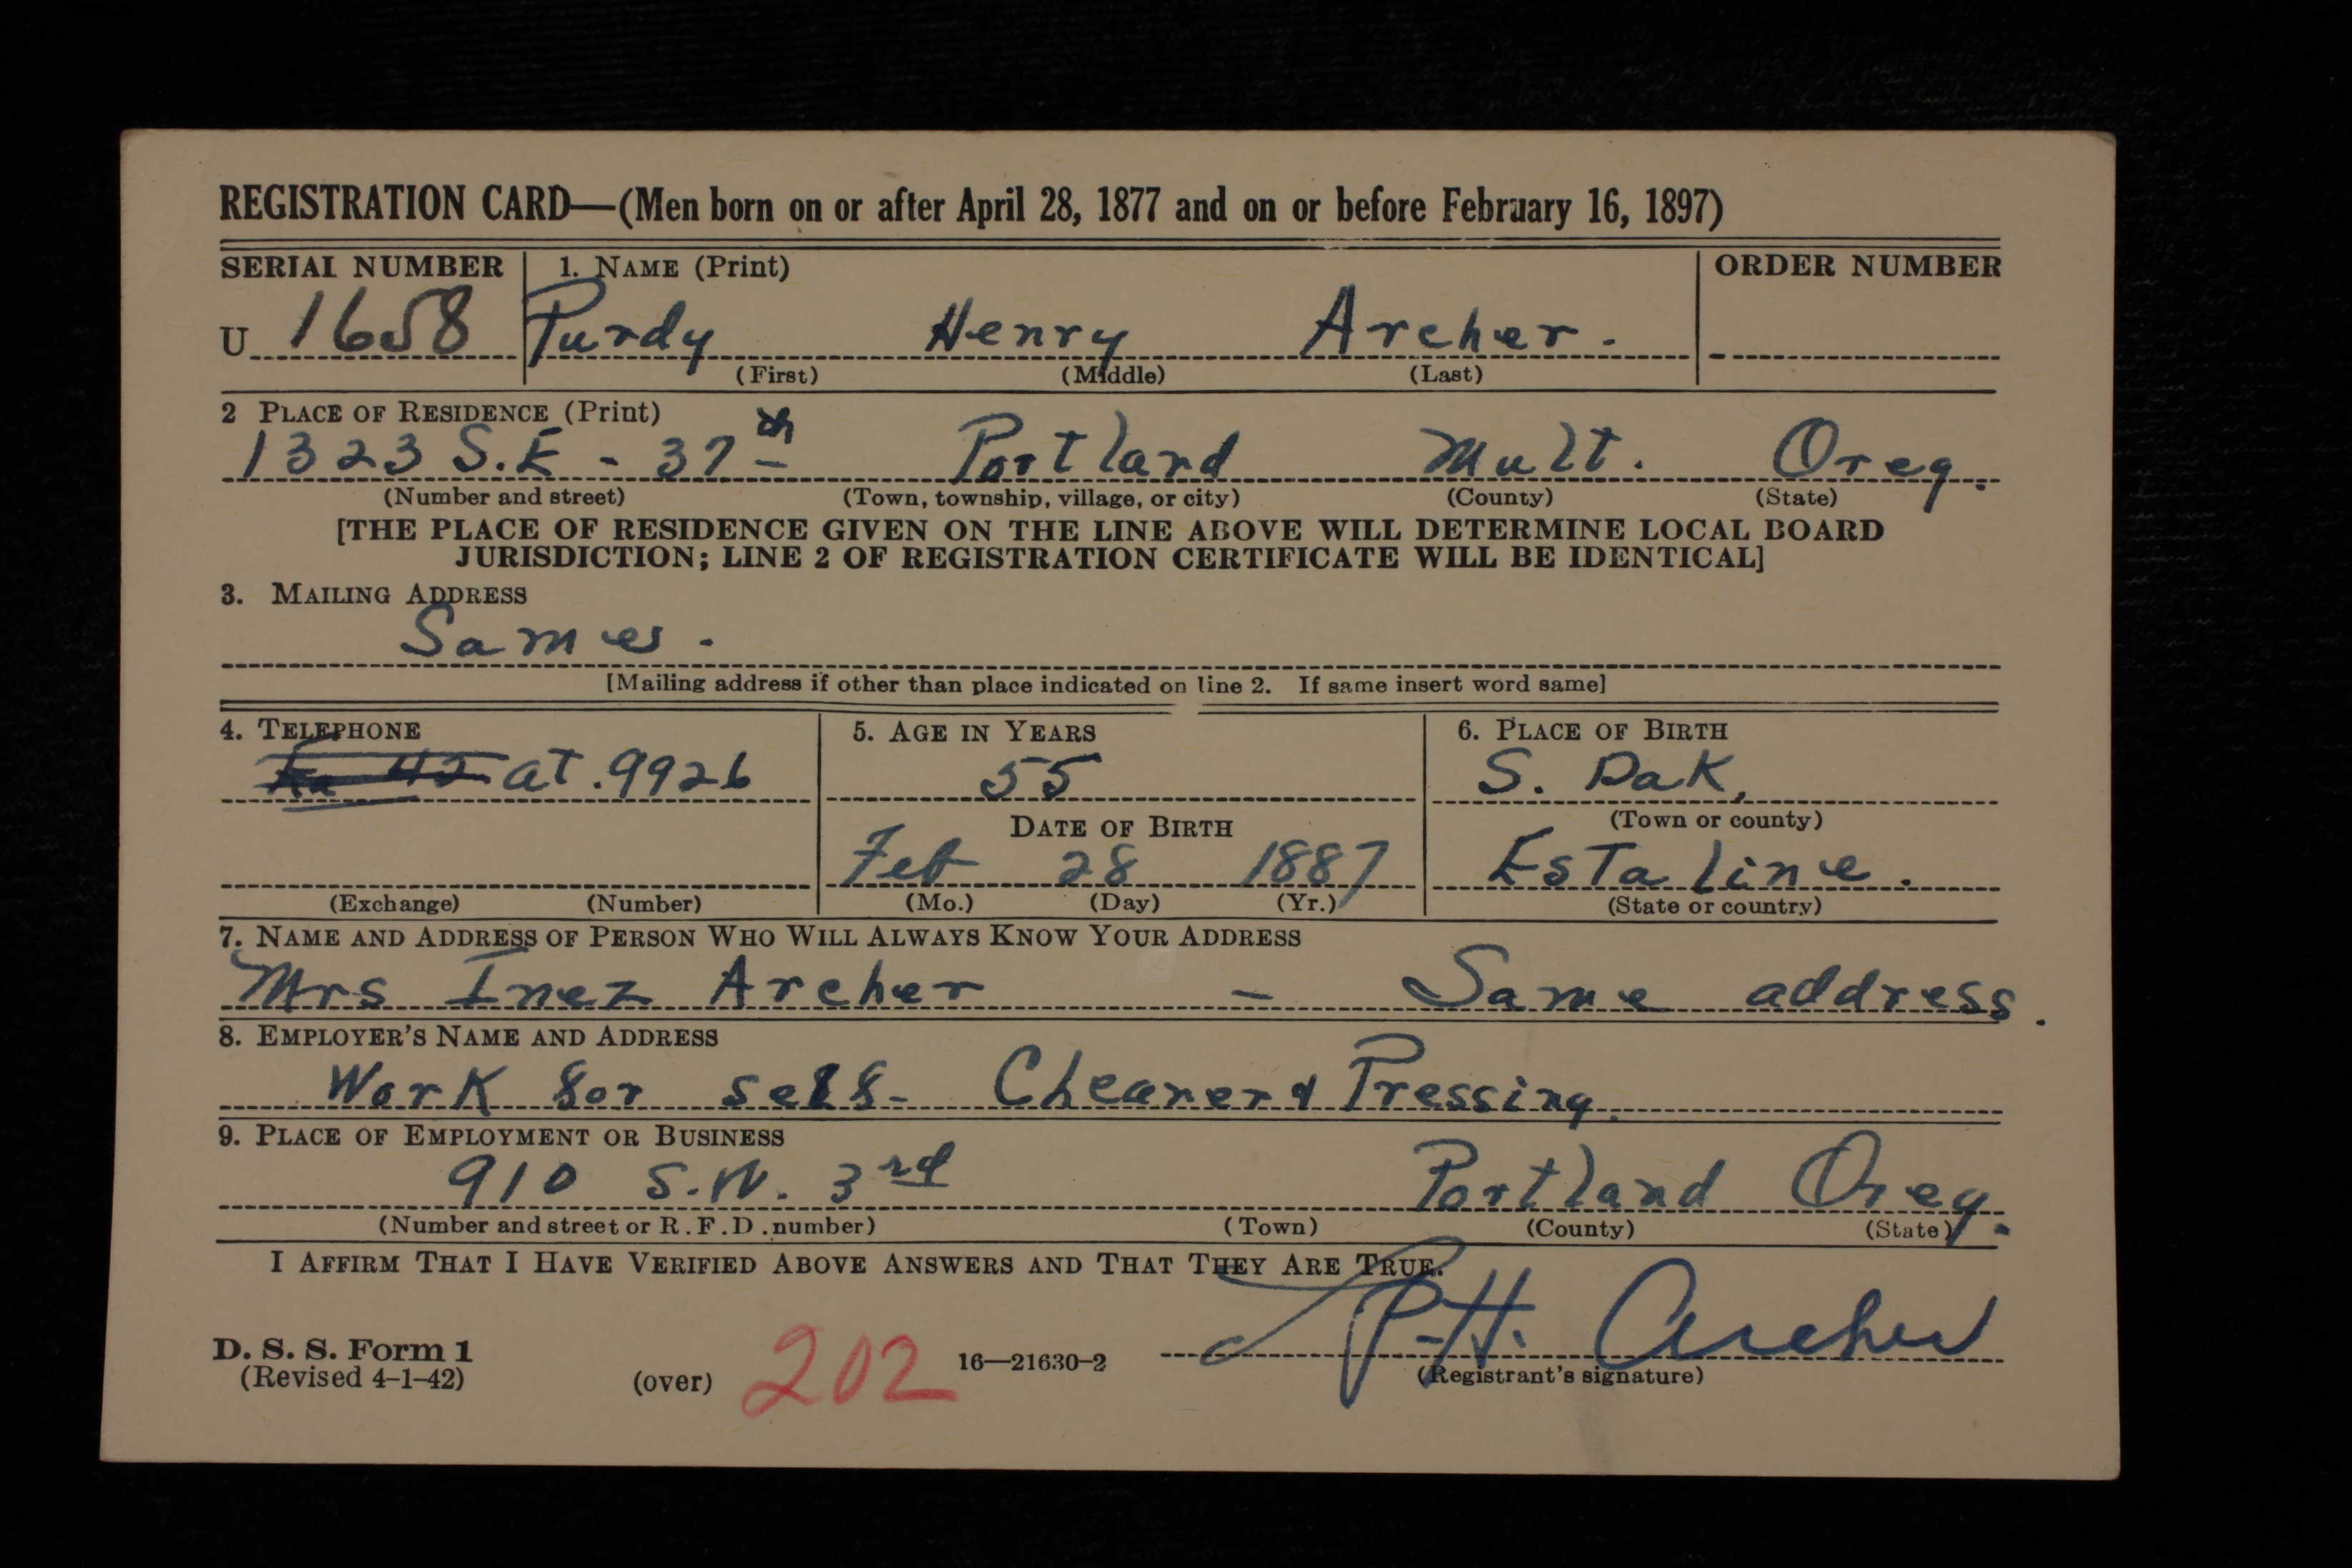 REGISTRATION CARD—(Men born on or after April 28, 1877 and on or before February 16, 1897)
SERIAL NUMBER 1. NAME (Print) ORDER NUMBER
U 1658 Purdy Henry Archer.
(First) (Middle) (Last)
2 PLACE OF RESIDENCE (Print)
1323 S.E - 37th Portland Mult. Oreg.
(Number and street) (Town, township, village, or city) (County) (State)
[THE PLACE OF RESIDENCE GIVEN ON THE LINE ABOVE WILL DETERMINE LOCAL BOARD
JURISDICTION; LINE 2 OF REGISTRATION CERTIFICATE WILL BE IDENTICAL]
3. MAILING ADDRESS
Same.
[Mailing address if other than place indicated on line 2. If same insert word same]
4. TELEPHONE 5. AGE IN YEARS 6. PLACE OF BIRTH
at. 9926 55 S. Dak,
DATE OF BIRTH (Town or county)
Feb 28 1887 Estaline.
(Exchange) (Number) (Mo.) (Day) (Yr.) (State or country)
7. NAME AND ADDRESS OF PERSON WHO WILL ALWAYS KNOW YOUR ADDRESS
Mrs Inez Archer - Same address.
8. EMPLOYER'S NAME AND ADDRESS
Work for self- Cleaner & Pressing.
9. PLACE OF EMPLOYMENT OR BUSINESS
910 S.W. 3rd Portland Oreg.
(Number and street or R.F.D. number) (Town) (County) (State)
I AFFIRM THAT I HAVE VERIFIED ABOVE ANSWERS AND THAT THEY ARE TRUE.
P.H. Archer
D. S. S. Form 1
(Revised 4-1-42) (over) 202 16—21630-2 (Registrant's signature)